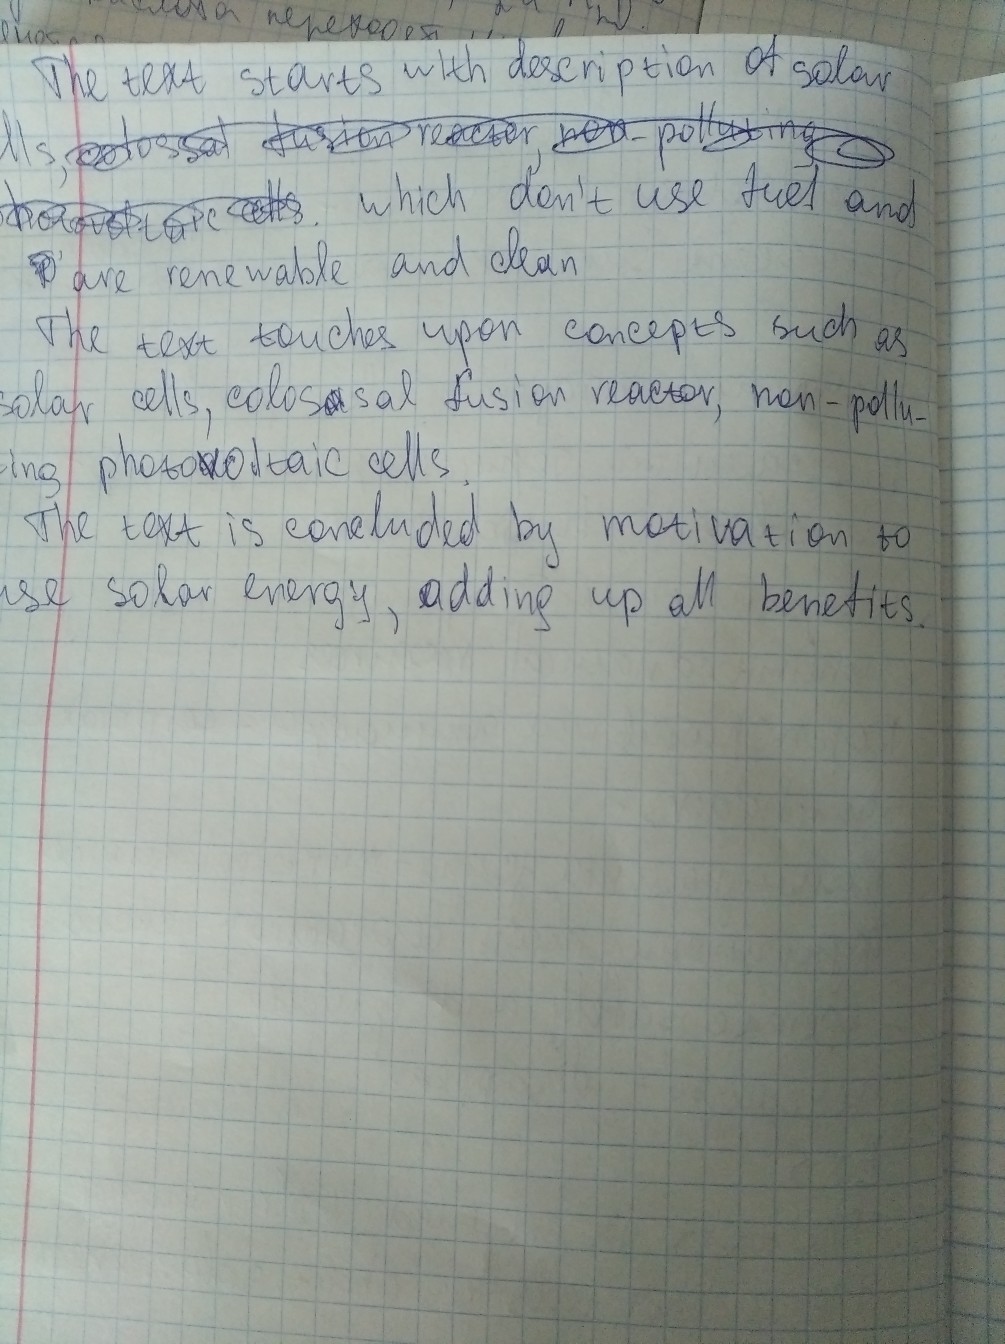 переходят
The text starts with description of solar
lls, colossal fusion reactor, non-polluting
photovoltaic cells. which don't use fuel and
are renewable and clean
The text touches upon concepts such as
solar cells, colossal fusion reactor, non-pollu-
ing photovoltaic cells.
The text is concluded by motivation to
use solar energy, adding up all benefits.